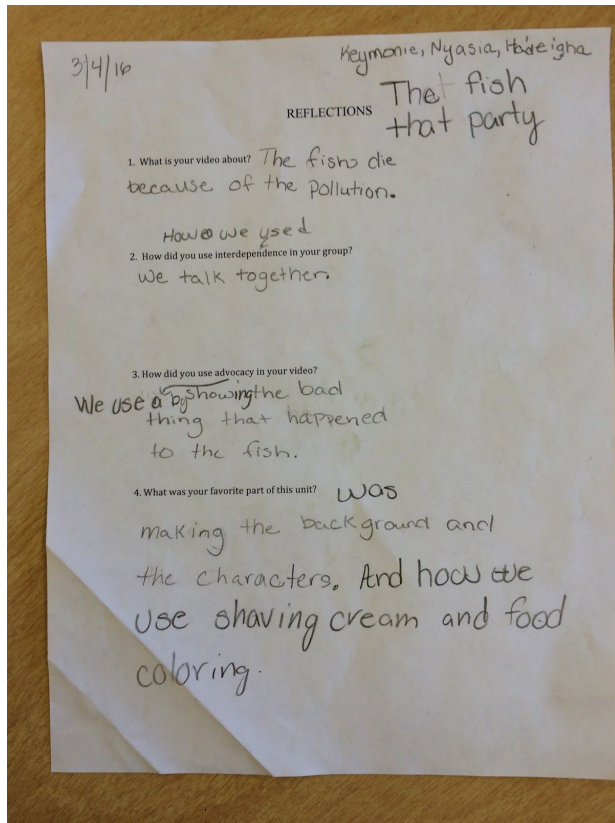 3/4/16
Keymonie, Nyasia, Hadeigha
The fish
REFLECTIONS
that party
1. What is your video about? The fish die
because of the Pollution.
How we used
2. How did you use interdependence in your group?
We talk together.
3. How did you use advocacy in your video?
We use a by showing the bad
thing that happened
to the fish.
4. What was your favorite part of this unit? was
making the background and
the characters. And how we
use shaving cream and food
coloring.